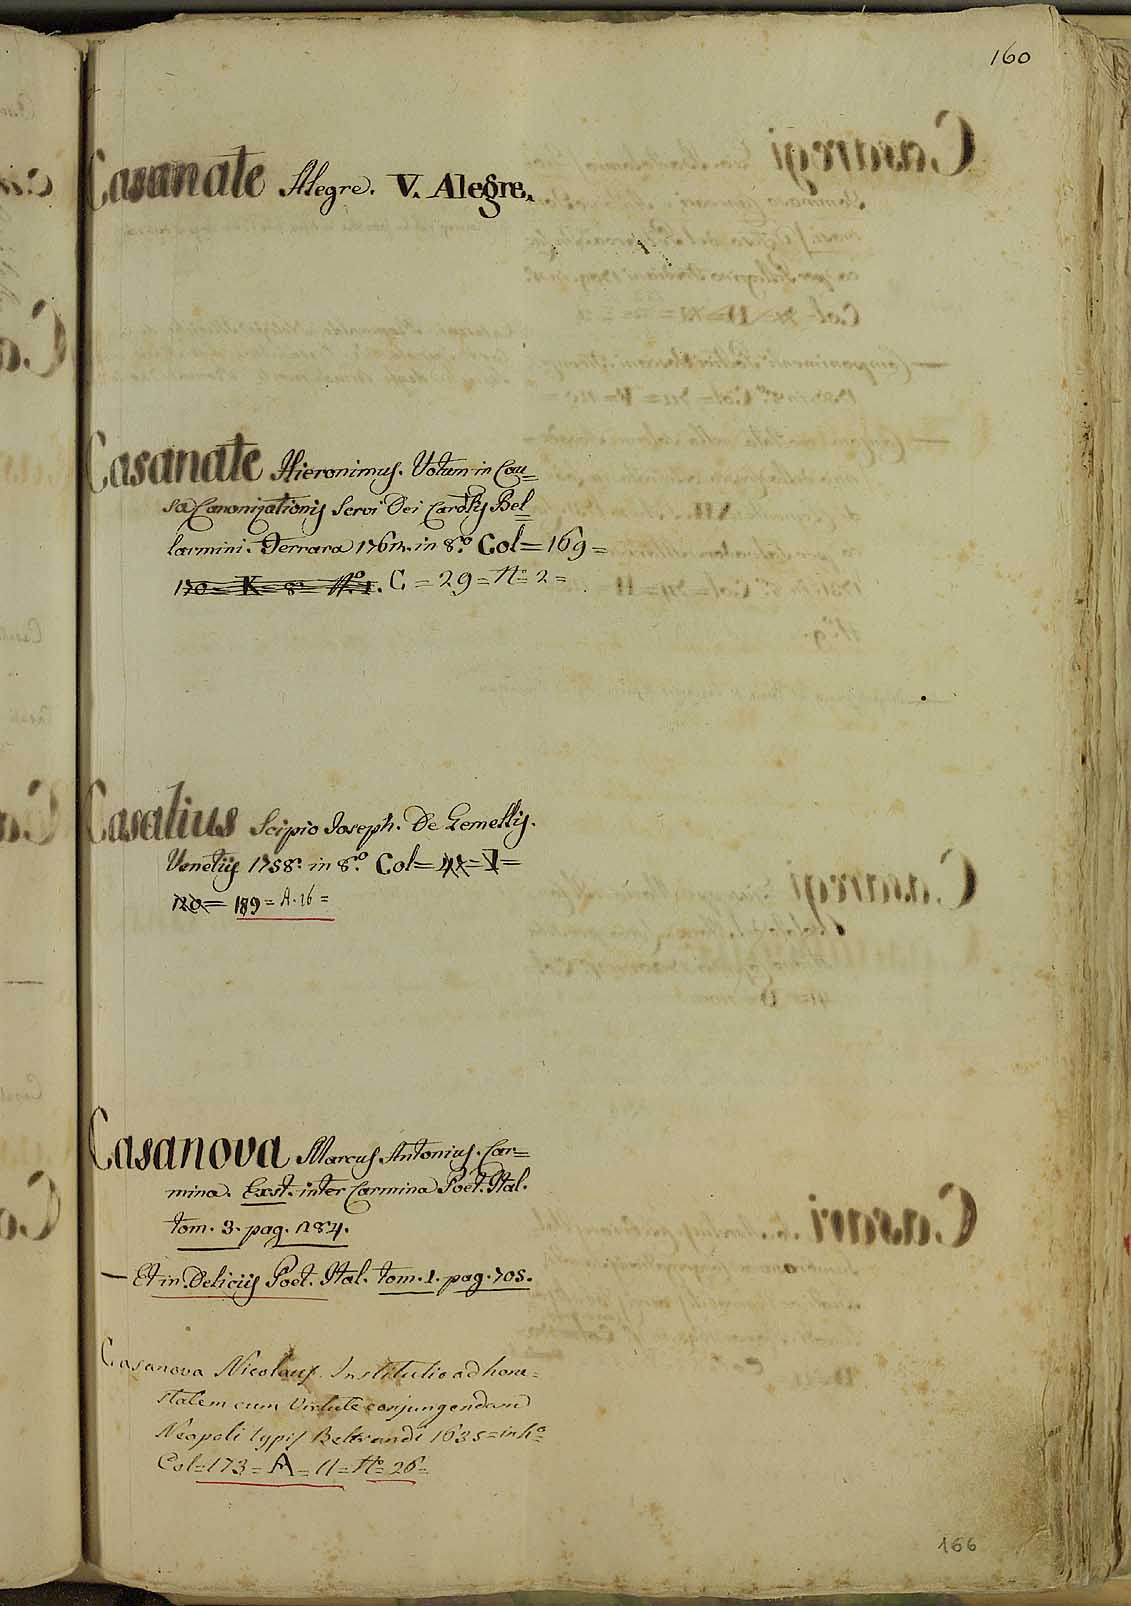 160
Casanate Alegre. V. Alegre.
Casanate Hieronimus. Votum in Cau=
sa Canonizationis Servi Dei Cardlis Bel
larmini. Ferrara in 8.º Col=169=
170= K= 8= N.º 1. C=29=N.º 2=
Casalius Scipio Joseph. De Gemellis.
Venetiis 1758. in 8.º Col=
120= 189= A. 16=
Casanova Marcus Antonius. Car=
mina. Exst. inter Carmina Poet. Ital.
tom. 3. pag. 284.
— Et in Deliciis Poet. Ital. tom. 1. pag. 705.
Casanova Nicolaus. Institutio ad hone=
statem cum Virtute conjungendam
Neapoli typis Beltrandi 1635= in 4.º
Col=173= A= 11= N.º 26=
166